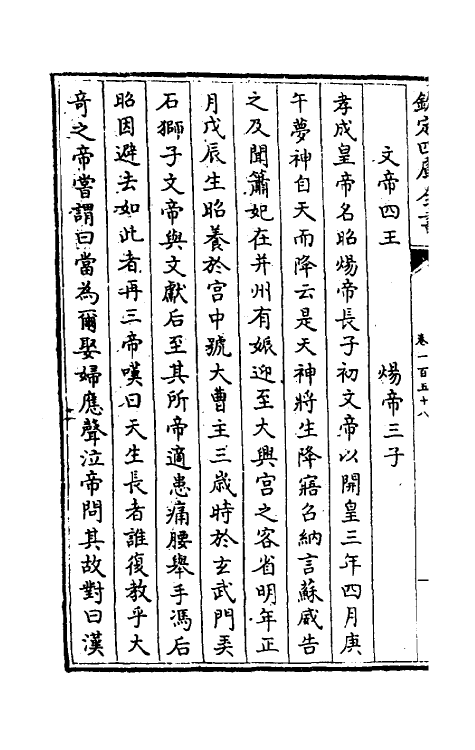 欽定四庫全書
卷一百五十八
文帝四王　煬帝三子
孝成皇帝名昭煬帝長子初文帝以開皇三年四月庚
午夢神自天而降云是天神將生降寤召納言蘇威告
之及聞蕭妃在并州有娠迎至大興宮之客省明年正
月戊辰生昭養於宮中號大曹主三歲時於玄武門弄
石獅子文帝與文獻后至其所帝適患痛腰舉手馮后
昭因避去如此者再三帝嘆曰天生長者誰復教乎大
奇之帝嘗謂曰當為爾娶婦應聲泣帝問其故對曰漢